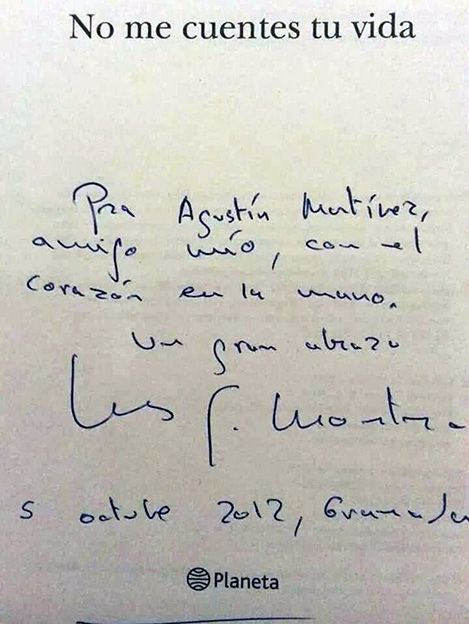 No me cuentes tu vida
Pra Agustín Martínez,
amigo mío, con el
corazón en la mano.
Un gran abrazo
Luis G. Montero
5 octubre 2012, Granada
Planeta